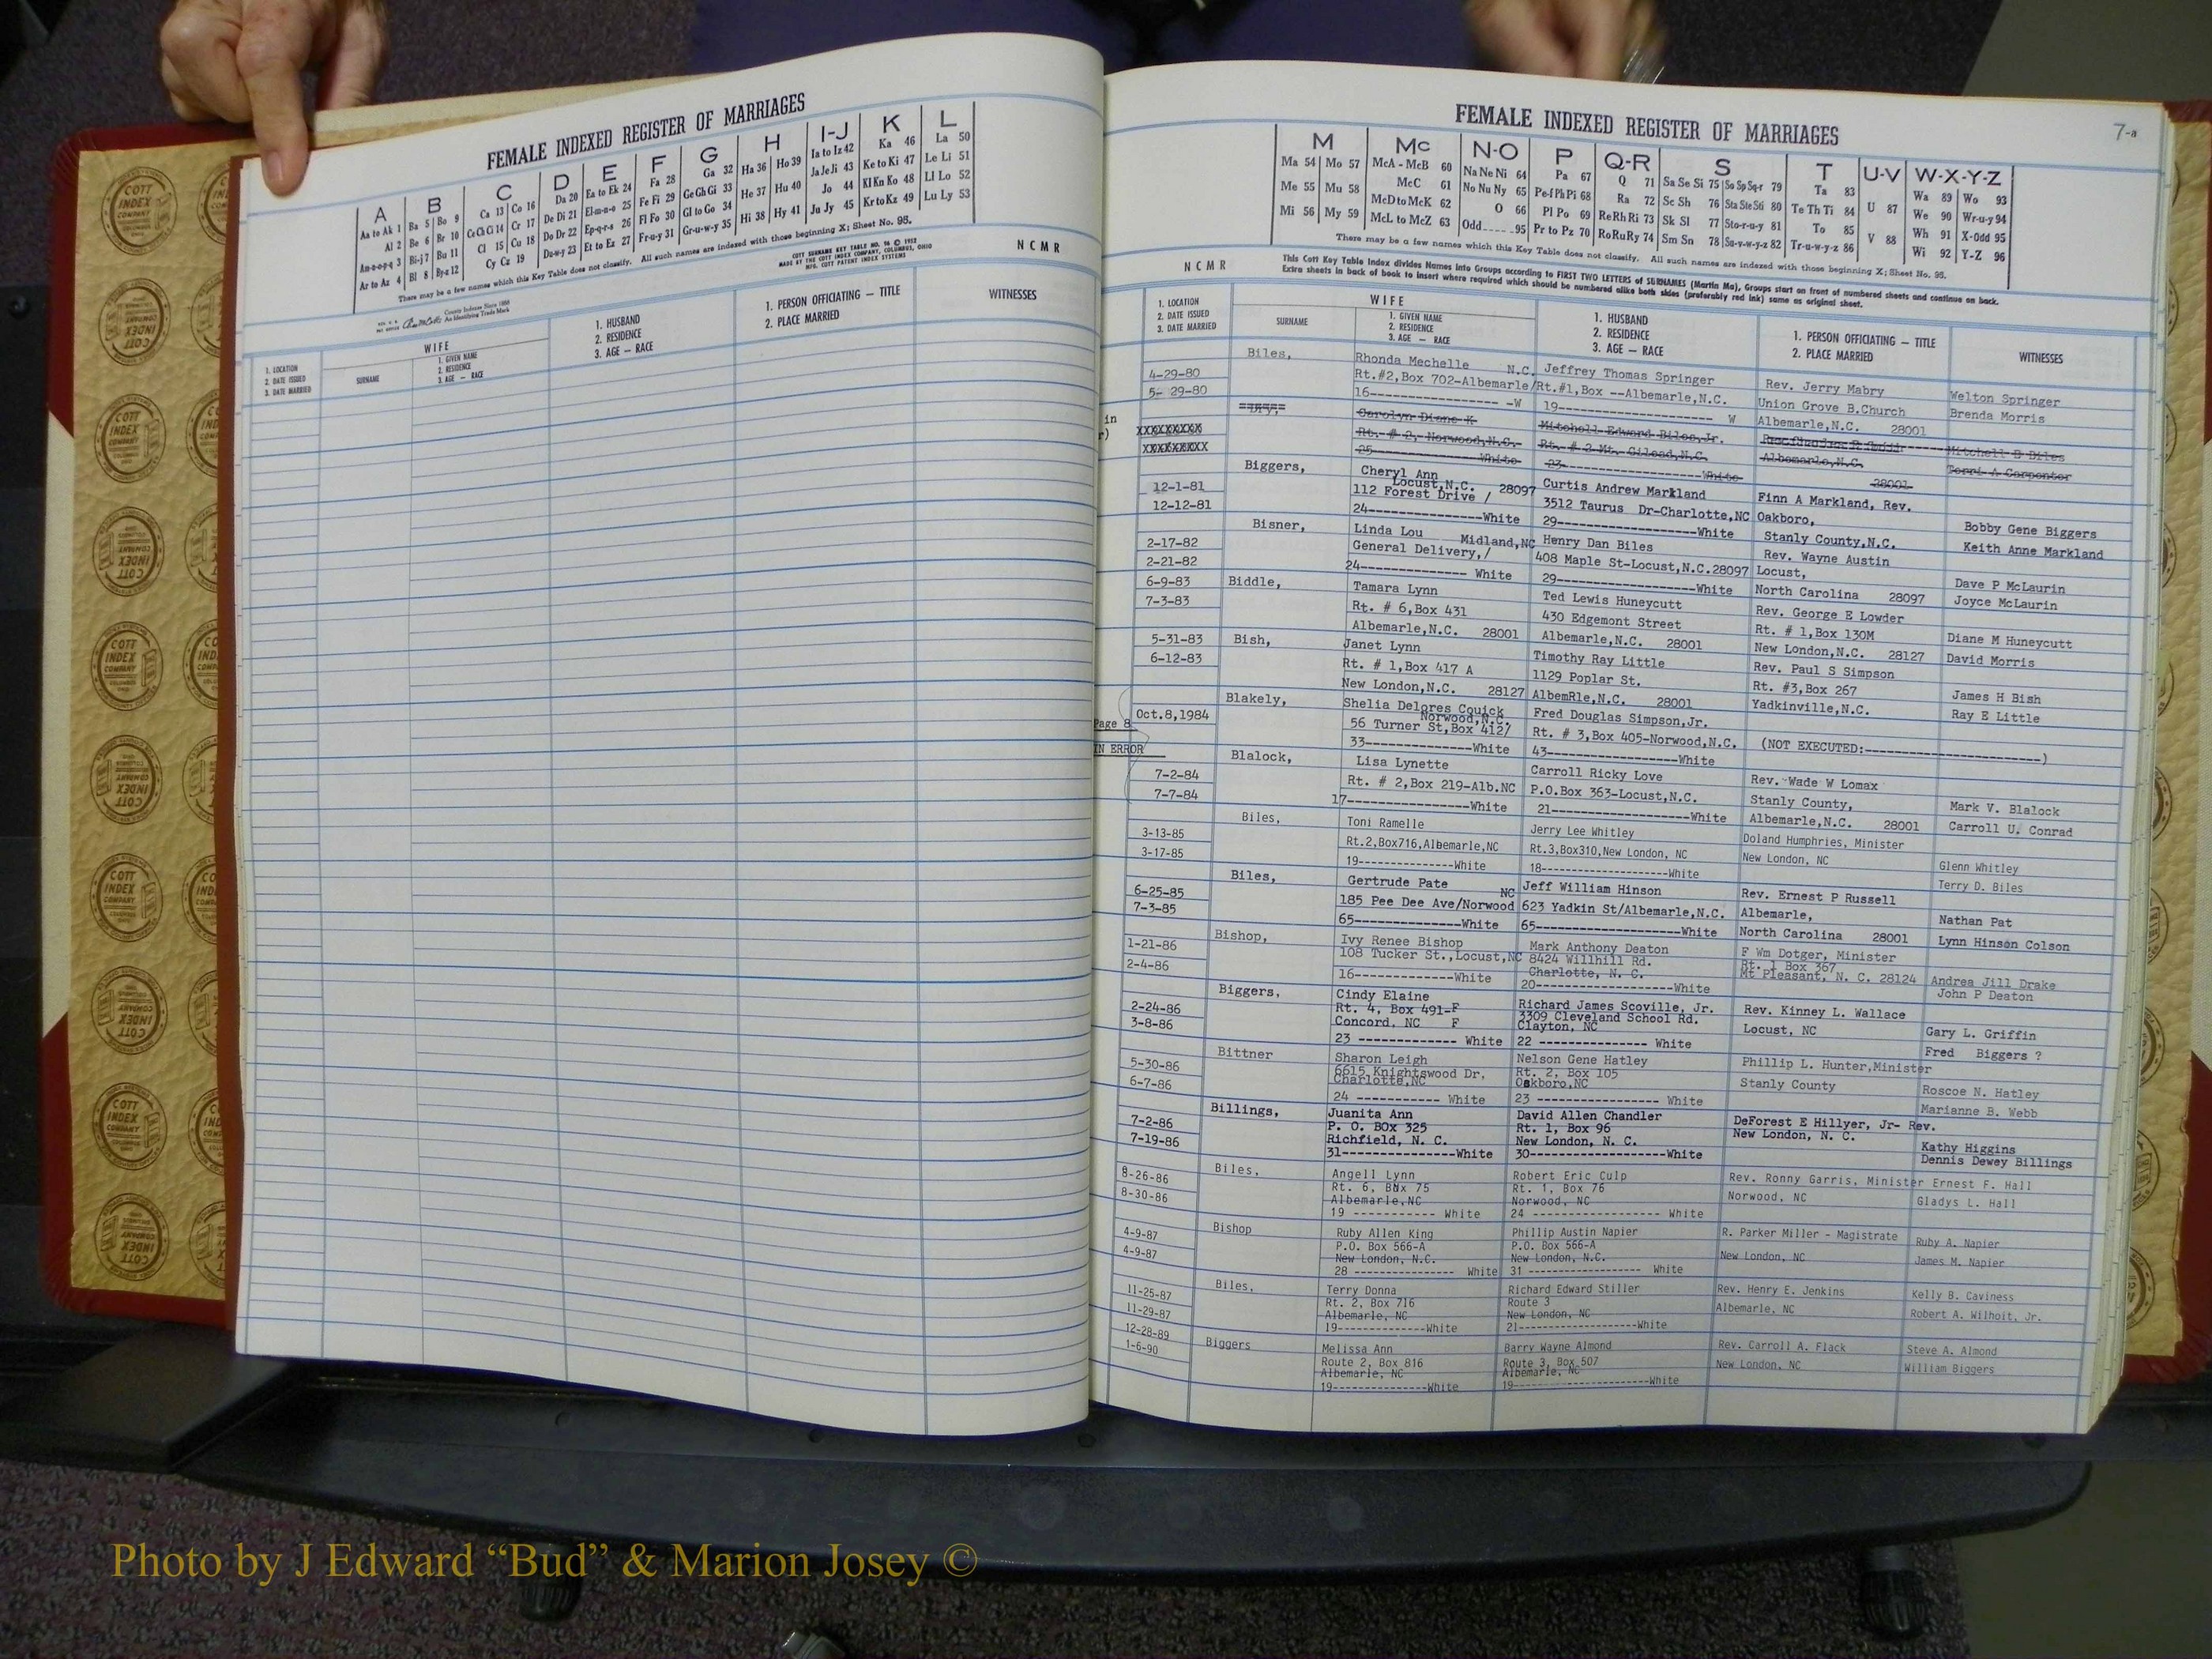 FEMALE INDEXED REGISTER OF MARRIAGES
A B C D E F G H I-J K L
Aa to Ak 1 Ba 5 Bo 9 Ca 13 Co 16 Da 20 Ea to Ek 24 Fa 28 Ga 32 Ha 36 Ho 39 Ia to Iz 42 Ka 46 La 50
Al 2 Be 6 Br 10 Ce Ch Ci 14 Cr 17 De Di 21 El-m-n-o 25 Fe Fi 29 Ge Gh Gi 33 He 37 Hu 40 Ja Je Ji 43 Ke to Ki 47 Le Li 51
Am-n-o-p-q 3 Bi-j 7 Bu 11 Cl 15 Cu 18 Do Dr 22 Ep-q-r-s 26 Fl Fo 30 Gl to Go 34 Hi 38 Hy 41 Jo 44 Kl Kn Ko 48 Ll Lo 52
Ar to Az 4 Bl 8 By-z 12 Cy Cz 19 Du-w-y 23 Et to Ez 27 Fr-u-y 31 Gr-u-w-y 35 Ju Jy 45 Kr to Kz 49 Lu Ly 53
There may be a few names which this Key Table does not classify. All such names are indexed with those beginning X; Sheet No. 95.
COTT SURNAME KEY TABLE NO. 96 © 1952
MADE BY THE COTT INDEX COMPANY, COLUMBUS, OHIO
MFG. COTT PATENT INDEX SYSTEMS
County Indexes Since 1888
An Identifying Trade Mark
NCMR
1. LOCATION
2. DATE ISSUED
3. DATE MARRIED
WIFE
SURNAME
1. GIVEN NAME
2. RESIDENCE
3. AGE — RACE
1. HUSBAND
2. RESIDENCE
3. AGE — RACE
1. PERSON OFFICIATING — TITLE
2. PLACE MARRIED
WITNESSES
FEMALE INDEXED REGISTER OF MARRIAGES
7-a
M Mc N-O P Q-R S T U-V W-X-Y-Z
Ma 54 Mo 57 McA - McB 60 Na Ne Ni 64 Pa 67 Q 71 Sa Se Si 75 So Sp Sq-r 79 Ta 83 Wa 89 Wo 93
Me 55 Mu 58 McC 61 No Nu Ny 65 Pe-f Ph Pi 68 Ra 72 Sc Sh 76 Sta Ste Sti 80 Te Th Ti 84 U 87 We 90 Wr-u-y 94
Mi 56 My 59 McD to McK 62 O 66 Pl Po 69 Re Rh Ri 73 Sk Sl 77 Sto-r-u-y 81 To 85 V 88 Wh 91 X-Odd 95
McL to McZ 63 Odd 95 Pr to Pz 70 Ro Ru Ry 74 Sm Sn 78 Su-v-w-y-z 82 Tr-u-w-y-z 86 Wi 92 Y-Z 96
There may be a few names which this Key Table does not classify. All such names are indexed with those beginning X; Sheet No. 95.
NCMR
This Cott Key Table Index divides Names into Groups according to FIRST TWO LETTERS of SURNAMES (Martin Ma), Groups start on front of numbered sheets and continue on back.
Extra sheets in back of book to insert where required which should be numbered alike both sides (preferably red ink) same as original sheet.
1. LOCATION
2. DATE ISSUED
3. DATE MARRIED
WIFE
SURNAME
1. GIVEN NAME
2. RESIDENCE
3. AGE — RACE
1. HUSBAND
2. RESIDENCE
3. AGE — RACE
1. PERSON OFFICIATING — TITLE
2. PLACE MARRIED
WITNESSES
Biles, Rhonda Mechelle N.C. Jeffrey Thomas Springer Rev. Jerry Mabry Welton Springer
4-29-80 Rt.#2,Box 702-Albemarle/ Rt.#1,Box --Albemarle,N.C. Union Grove B.Church Brenda Morris
5- 29-80 16------------------ -W 19---------------------- W Albemarle,N.C. 28001
in
r)
XXXXXXXXX Carolyn Diane K Mitchell Edward Biles,Jr. Mitchell B Biles
XXXXXXXXX Rt. # 2, Norwood,N.C. Rt. # 2 Mt. Gilead,N.C. Albemarle,N.C. Terri A Carpenter
25--------------White 23--------------------White 28001
Biggers, Cheryl Ann Curtis Andrew Markland Finn A Markland, Rev. Bobby Gene Biggers
12-1-81 Locust,N.C. 28097
112 Forest Drive / 3512 Taurus Dr-Charlotte,NC Oakboro, Keith Anne Markland
12-12-81 24---------------White 29------------------White Stanly County,N.C.
Bisner, Linda Lou Midland,NC Henry Dan Biles Rev. Wayne Austin Dave P McLaurin
2-17-82 General Delivery,/ 408 Maple St-Locust,N.C.28097 Locust, Joyce McLaurin
2-21-82 24-------------- White 29-------------------White North Carolina 28097
6-9-83 Biddle, Tamara Lynn Ted Lewis Huneycutt Rev. George E Lowder Diane M Huneycutt
7-3-83 Rt. # 6,Box 431 430 Edgemont Street Rt. # 1,Box 130M David Morris
Albemarle,N.C. 28001 Albemarle,N.C. 28001 New London,N.C. 28127
5-31-83 Bish, Janet Lynn Timothy Ray Little Rev. Paul S Simpson James H Bish
6-12-83 Rt. # 1,Box 417 A 1129 Poplar St. Rt. #3,Box 267 Ray E Little
New London,N.C. 28127 AlbemRle,N.C. 28001 Yadkinville,N.C.
Page 8
IN ERROR
Blakely, Shelia Delores Couick Fred Douglas Simpson,Jr.
Oct.8,1984 Norwood,N.C.
56 Turner St,Box 412/ Rt. # 3,Box 405-Norwood,N.C. (NOT EXECUTED:--------------------------)
33---------------White 43--------------------White
Blalock, Lisa Lynette Carroll Ricky Love Rev. Wade W Lomax Mark V. Blalock
7-2-84 Rt. # 2,Box 219-Alb.NC P.O.Box 363-Locust,N.C. Stanly County, Carroll U. Conrad
7-7-84 17-----------------White 21-------------------White Albemarle,N.C. 28001
Biles, Toni Ramelle Jerry Lee Whitley Doland Humphries, Minister Glenn Whitley
3-13-85 Rt.2,Box716,Albemarle,NC Rt.3,Box310,New London, NC New London, NC Terry D. Biles
3-17-85 19--------------White 18--------------------White
Biles, Gertrude Pate NC Jeff William Hinson Rev. Ernest P Russell Nathan Pat
6-25-85 185 Pee Dee Ave/Norwood 623 Yadkin St/Albemarle,N.C. Albemarle, Lynn Hinson Colson
7-3-85 65---------------White 65--------------------White North Carolina 28001
Bishop, Ivy Renee Bishop Mark Anthony Deaton F Wm Dotger, Minister Andrea Jill Drake
1-21-86 108 Tucker St.,Locust,NC 8424 Willhill Rd. Rt. 1 Box 367 John P Deaton
2-4-86 Charlotte, N. C. Mt Pleasant, N. C. 28124
16---------------White 20-------------------White
Biggers, Cindy Elaine Richard James Scoville, Jr. Rev. Kinney L. Wallace Gary L. Griffin
2-24-86 Rt. 4, Box 491-F 3309 Cleveland School Rd. Locust, NC Fred Biggers ?
3-8-86 Concord, NC F Clayton, NC
23 ------------- White 22 --------------- White
Bittner Sharon Leigh Nelson Gene Hatley Phillip L. Hunter,Minister Roscoe N. Hatley
5-30-86 6615 Knightswood Dr. Rt. 2, Box 105 Stanly County Marianne B. Webb
6-7-86 Charlotte,NC Oakboro,NC
24 ----------- White 23 ----------------- White
Billings, Juanita Ann David Allen Chandler DeForest E Hillyer, Jr- Rev. Kathy Higgins
7-2-86 P. O. BOx 325 Rt. 1, Box 96 New London, N. C. Dennis Dewey Billings
7-19-86 Richfield, N. C. New London, N. C.
31----------------White 30-------------------White
Biles, Angell Lynn Robert Eric Culp Rev. Ronny Garris, Minister Ernest F. Hall
8-26-86 Rt. 6, BOx 75 Rt. 1, Box 76 Norwood, NC Gladys L. Hall
8-30-86 Albemarle,NC Norwood, NC
19 ------------ White 24 ------------------ White
Bishop Ruby Allen King Phillip Austin Napier R. Parker Miller - Magistrate Ruby A. Napier
4-9-87 P.O. Box 566-A P.O. Box 566-A New London, NC James M. Napier
4-9-87 New London, N.C. New London, N.C.
28 ---------------- White 31 ------------------ White
Biles, Terry Donna Richard Edward Stiller Rev. Henry E. Jenkins Kelly B. Caviness
11-25-87 Rt. 2, Box 716 Route 3 Albemarle, NC Robert A. Wilhoit, Jr.
11-29-87 Albemarle, NC New London, NC
19--------------White 21-------------------White
12-28-89 Biggers Melissa Ann Barry Wayne Almond Rev. Carroll A. Flack Steve A. Almond
1-6-90 Route 2, Box 816 Route 3, Box 507 New London, NC William Biggers
Albemarle, NC Albemarle, NC
19---------------White 19----------------------White
Photo by J Edward “Bud” & Marion Josey ©